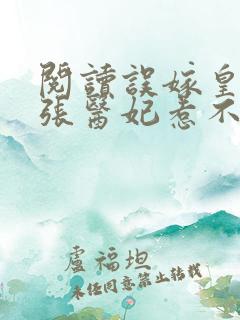 閱讀誤嫁皇
張醫妃惹不
盧福坦
未经同意禁止转载